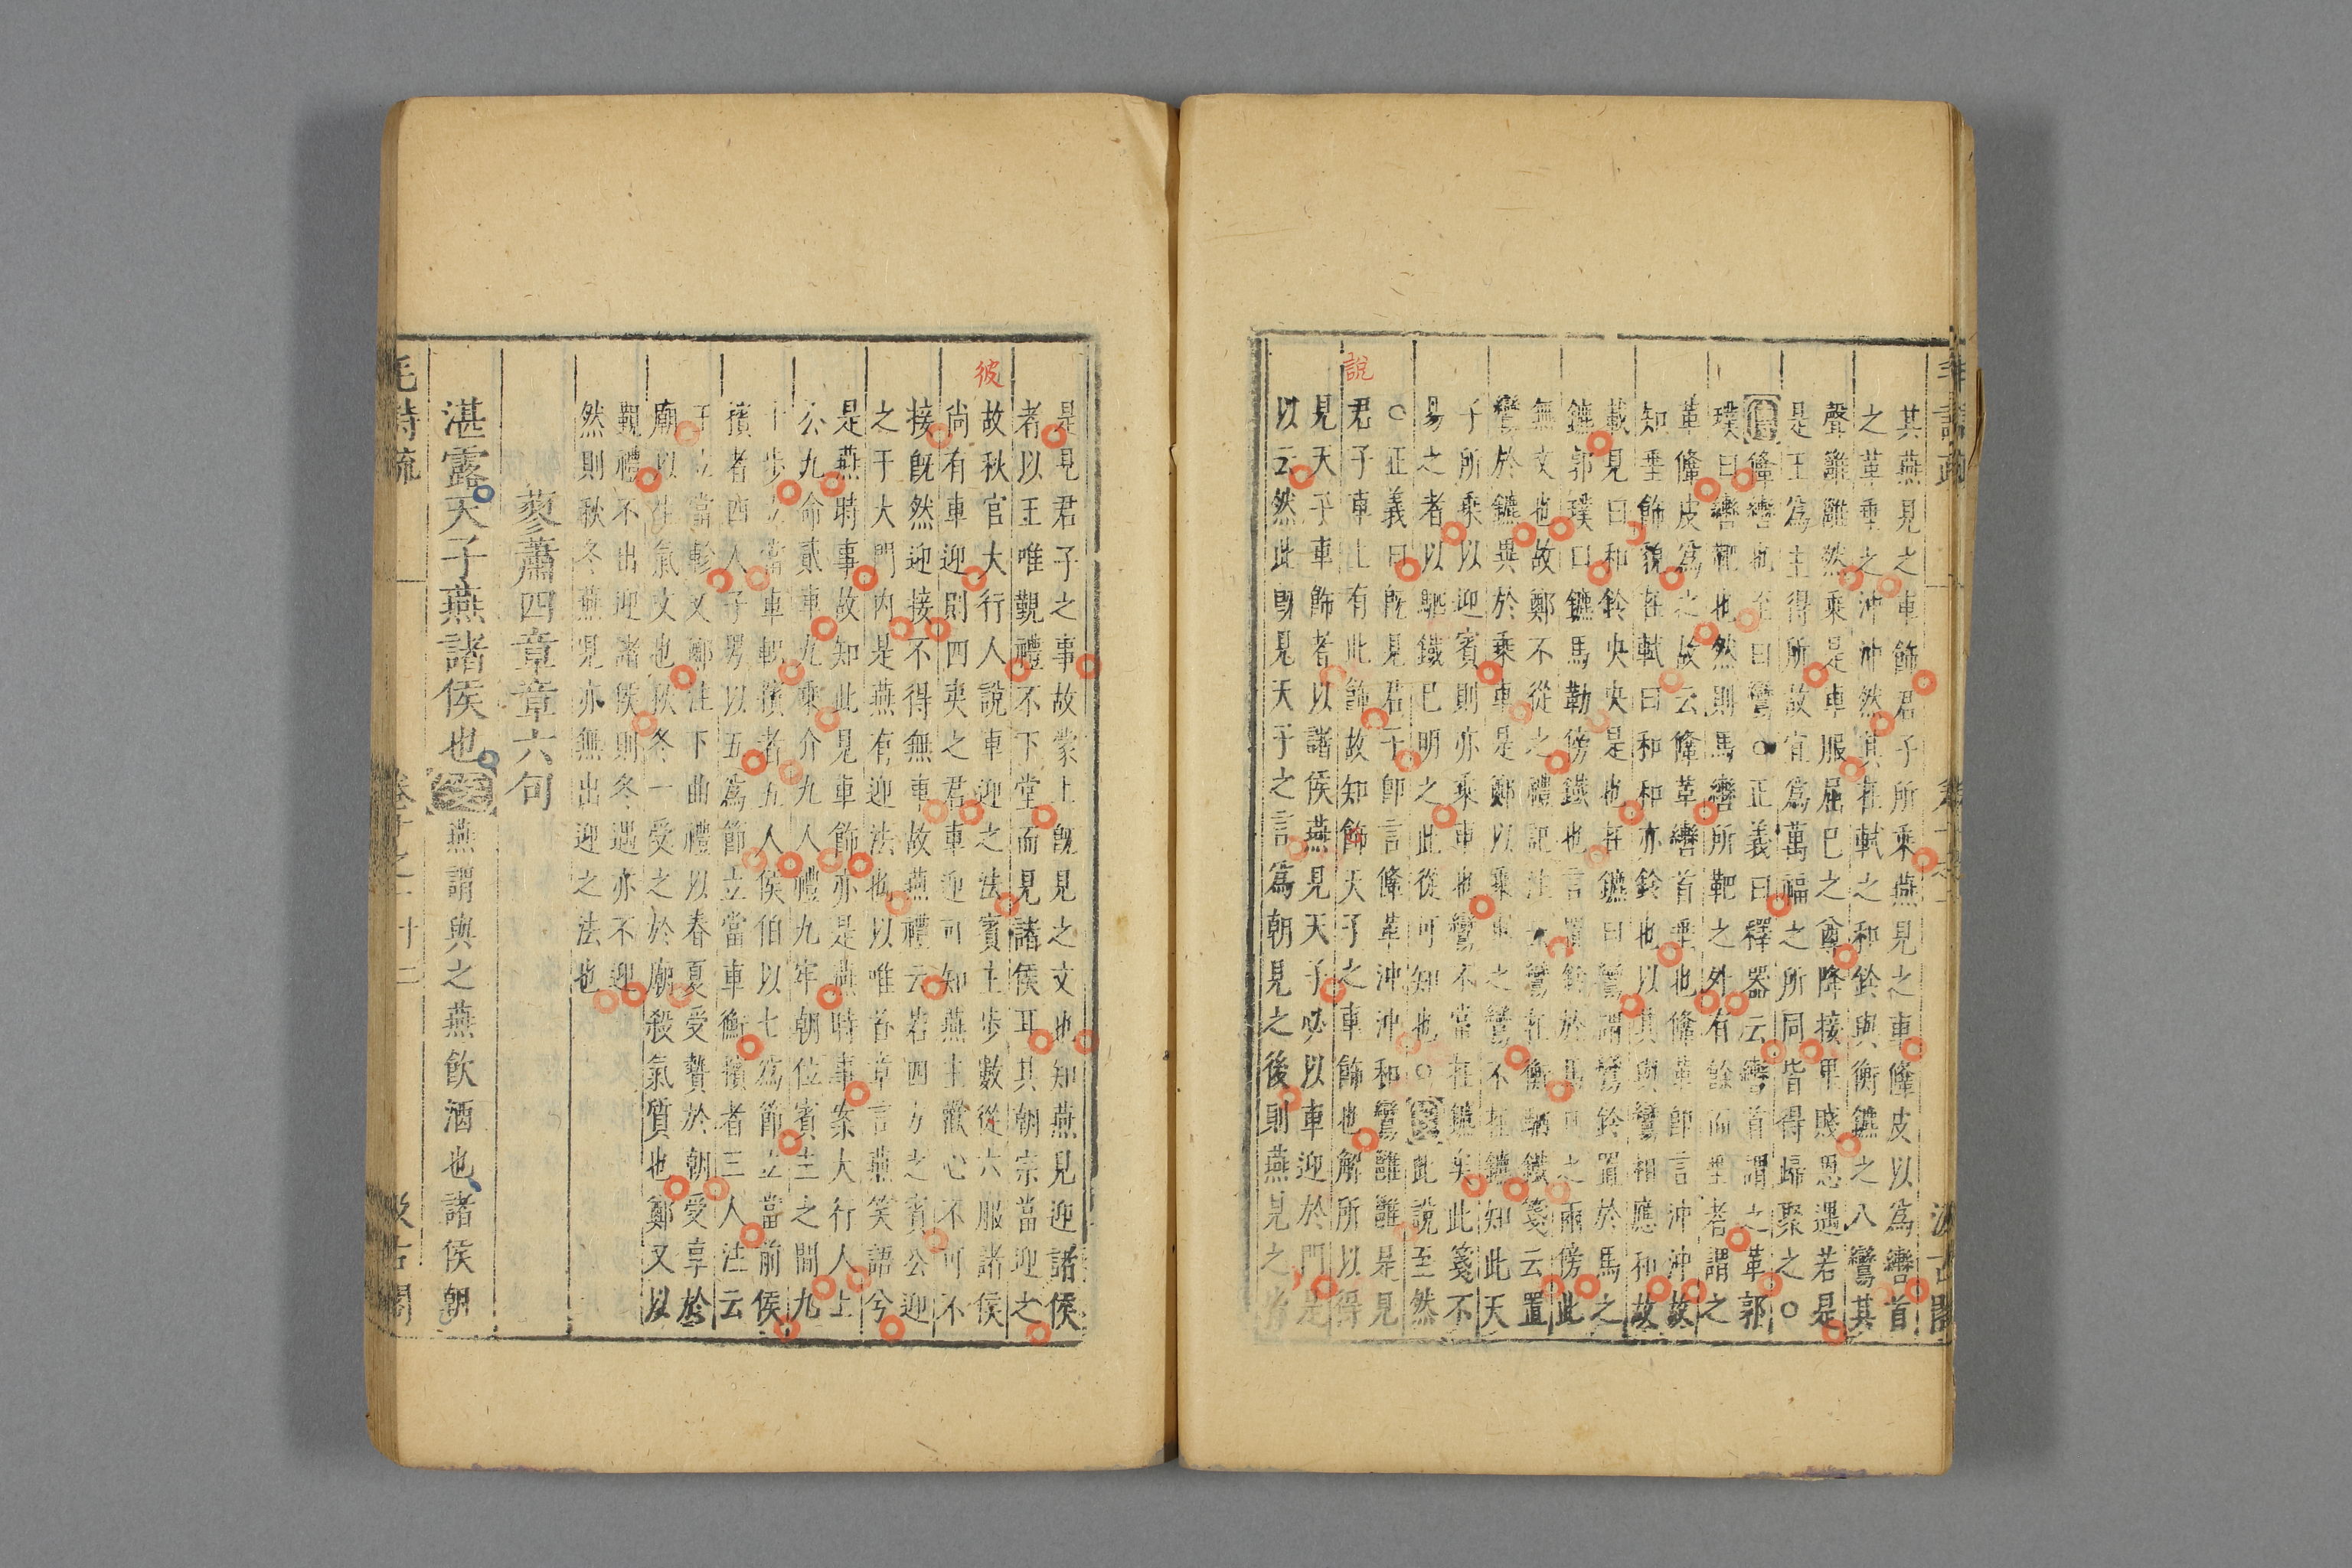 其燕見之車飾君子所乘燕見之車鞗皮以爲轡首
之革垂之沖沖然其在軾之和鈴與衡鑣之八鸞其
聲雝雝然乘是車服屈已之尊降接卑賤恩遇若是
是王爲主得所故宜爲萬福之所同皆得歸聚之○
鞗轡也至曰鸞○正義曰釋器云轡首謂之革郭
璞曰轡靶也然則馬轡所靶之外有餘而垂者謂之
革鞗皮爲之故云鞗革轡首垂也鞗革卽言沖沖故
知垂飾貌在軾曰和和亦鈴也以其與鸞相應和故
載見曰和鈴央央是也在鑣曰鸞謂鸞鈴置於馬之
鑣郭璞曰鑣馬勒傍鐵也言置鈴於馬口之兩傍此
無文也故鄭不從之禮記注云鸞在衡駟鐵箋云置
鸞於鑣異於乘車是鄭以乘車之鸞不在鑣知此天
子所乘以迎賓則亦乘車也鸞不當在鑣矣此箋不
易之者以駟鐵已明之此從可知也○此說至然
○正義曰旣見君子卽言鞗革沖沖和鸞雝雝是見
說
君子車上有此飾故知飾天子之車飾也解所以得
見天子車飾者以諸侯燕見天子必以車迎於門是
以云然此旣見天子之言爲朝見之後則燕見之
是見君子之事故蒙上旣見之文也知燕見迎諸侯
者以王唯覲禮不下堂而見諸侯耳其朝宗當迎之
彼
故秋官大行人說車迎之法賓主步數從六服諸侯
尚有車迎則四夷之君車迎可知燕主歡心不可不
接旣然迎接不得無車故燕禮云若四方之賓公迎
之于大門內是燕有迎法也以唯首章言燕笑語兮
是燕時事故知此見車飾亦是燕時事案大行人上
公九命貳車九乘介九人禮九牢朝位賓主之間九
十步立當車軹擯者五人侯伯以七爲節立當前侯
擯者四人子男以五爲節立當車衡擯者三人注云
王立當軫又鄭注下曲禮以春夏受贄於朝受享於
廟以生氣文也秋冬一受之於廟殺氣質也鄭又以
覲禮不出迎諸侯則冬遇亦不迎
然則秋冬燕見亦無出迎之法也
蓼蕭四章章六句
湛露天子燕諸侯也燕謂與之燕飲酒也諸侯朝
毛詩疏
汲古閣